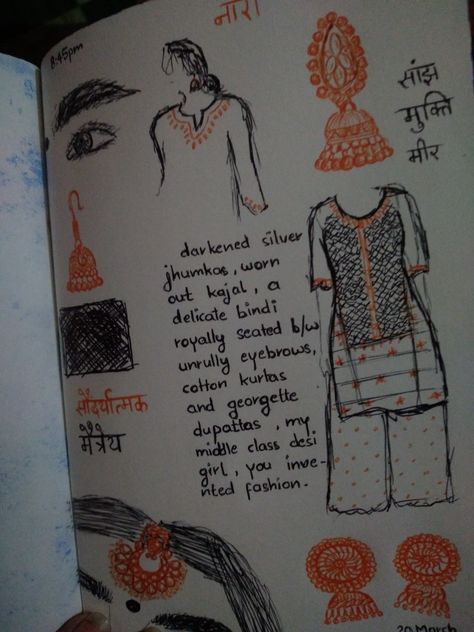 8:45pm
नारी
सांझ
मुक्ति
मीर
darkened silver
jhumkas, worn
out kajal, a
delicate bindi
royally seated b/w
unrully eyebrows,
cotton kurtas
and georgette
dupattas, my
middle class desi
girl, you inve-
nted fashion.
सौंदर्यात्मक
मैत्रेय
20 March